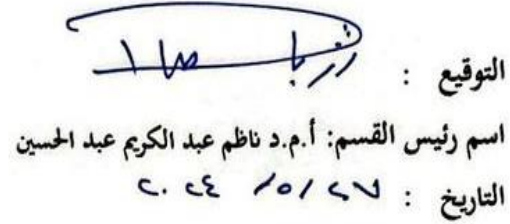 التوقيع :
اسم رئيس القسم: أ.م.د ناظم عبد الكريم عبد الحسين
التاريخ : ٢٧ /٥/ ٢٠٢٤